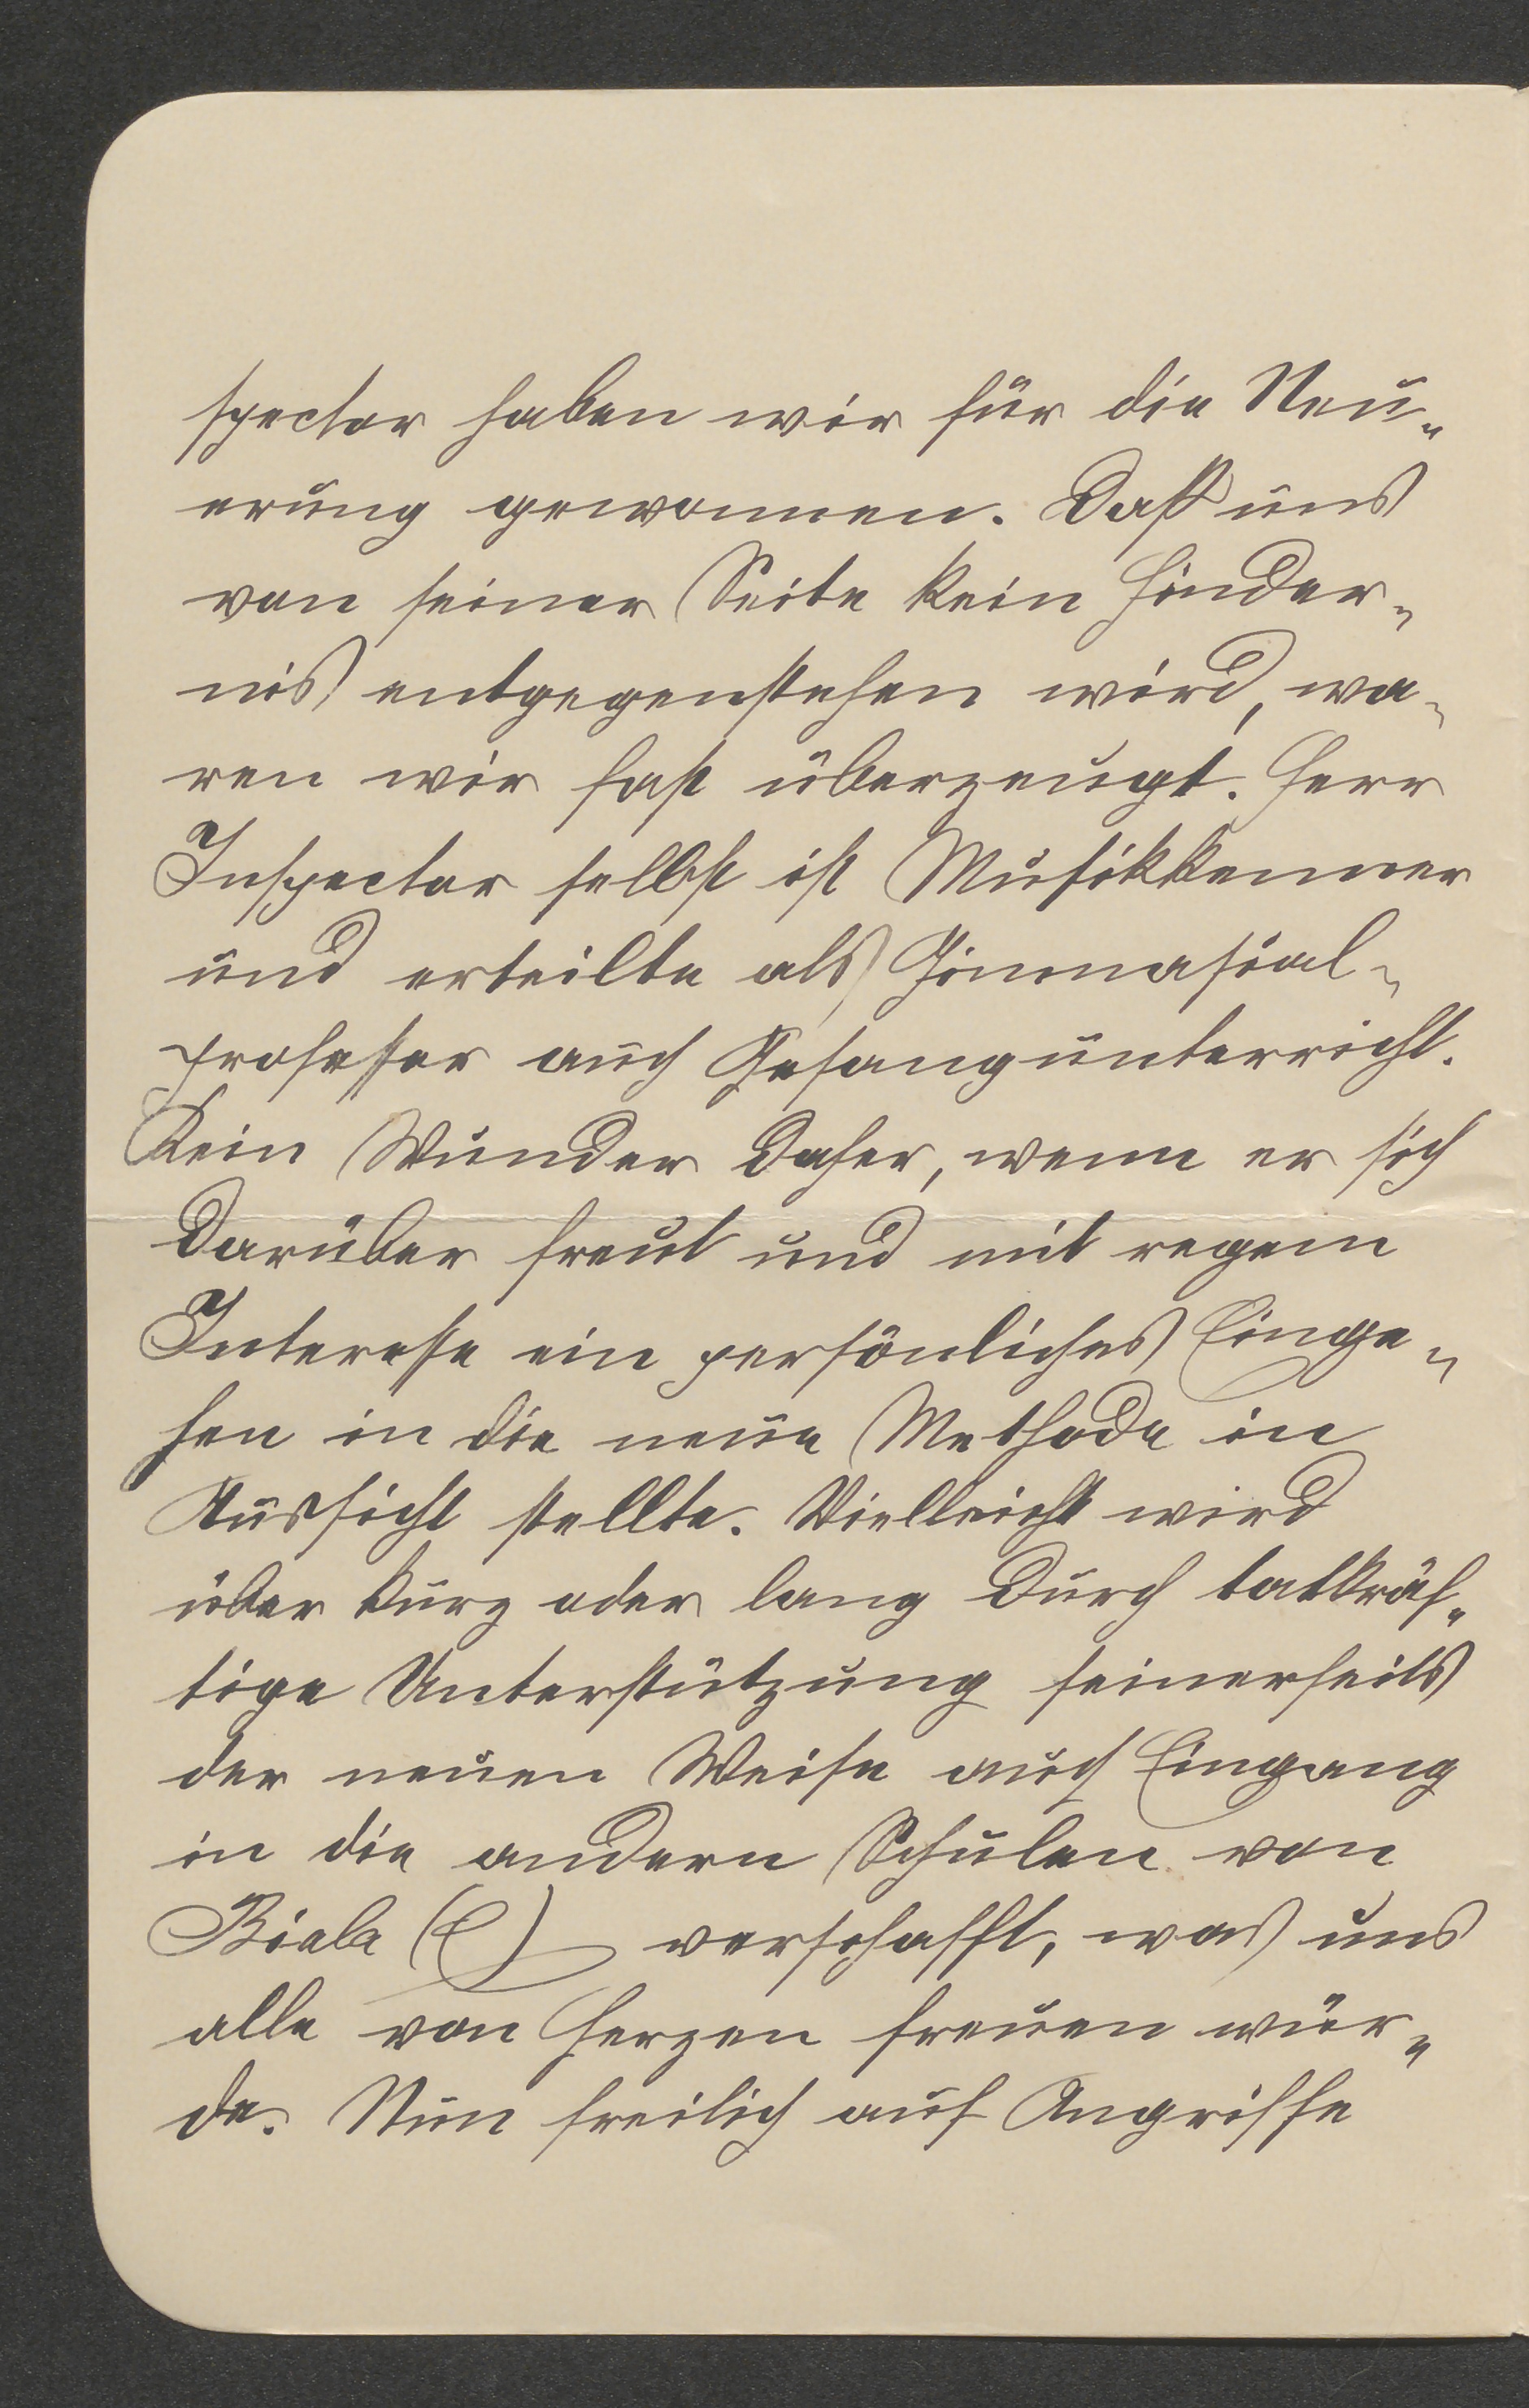 spector haben wir für die Neu-
erung gewonnen. Dass uns
von seiner Seite kein Hinder-
nis entgegenstehen wird, wa-
ren wir fast überzeugt. Herr
Inspector selbst ist Musikkenner
und erteilte als Gimnasial-
professor auch Gesangunterricht.
Kein Wunder daher, wenn er sich
darüber freut und mit regem
Interesse ein persönliches Einge-
hen in die neue Methode in
Aussicht stellte. Vielleicht wird
über kurz oder lang durch tatkräf-
tige Unterstützung seinerseits
der neuen Weise auch Eingang
in die andern Schulen von
Biala verschafft, was uns
alle von Herzen freuen wür-
de. Nun freilich auf Angriffe